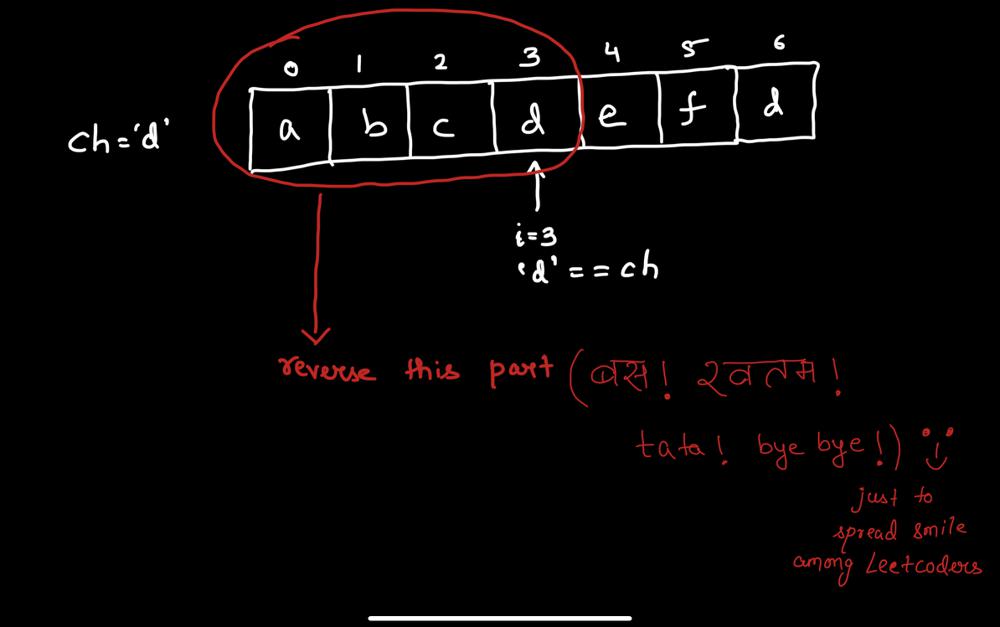 0 1 2 3 4 5 6
ch='d' a b c d e f d
i=3
'd' == ch
reverse this part (बस! खतम!
tata! bye bye!)
just to
spread smile
among Leetcoders